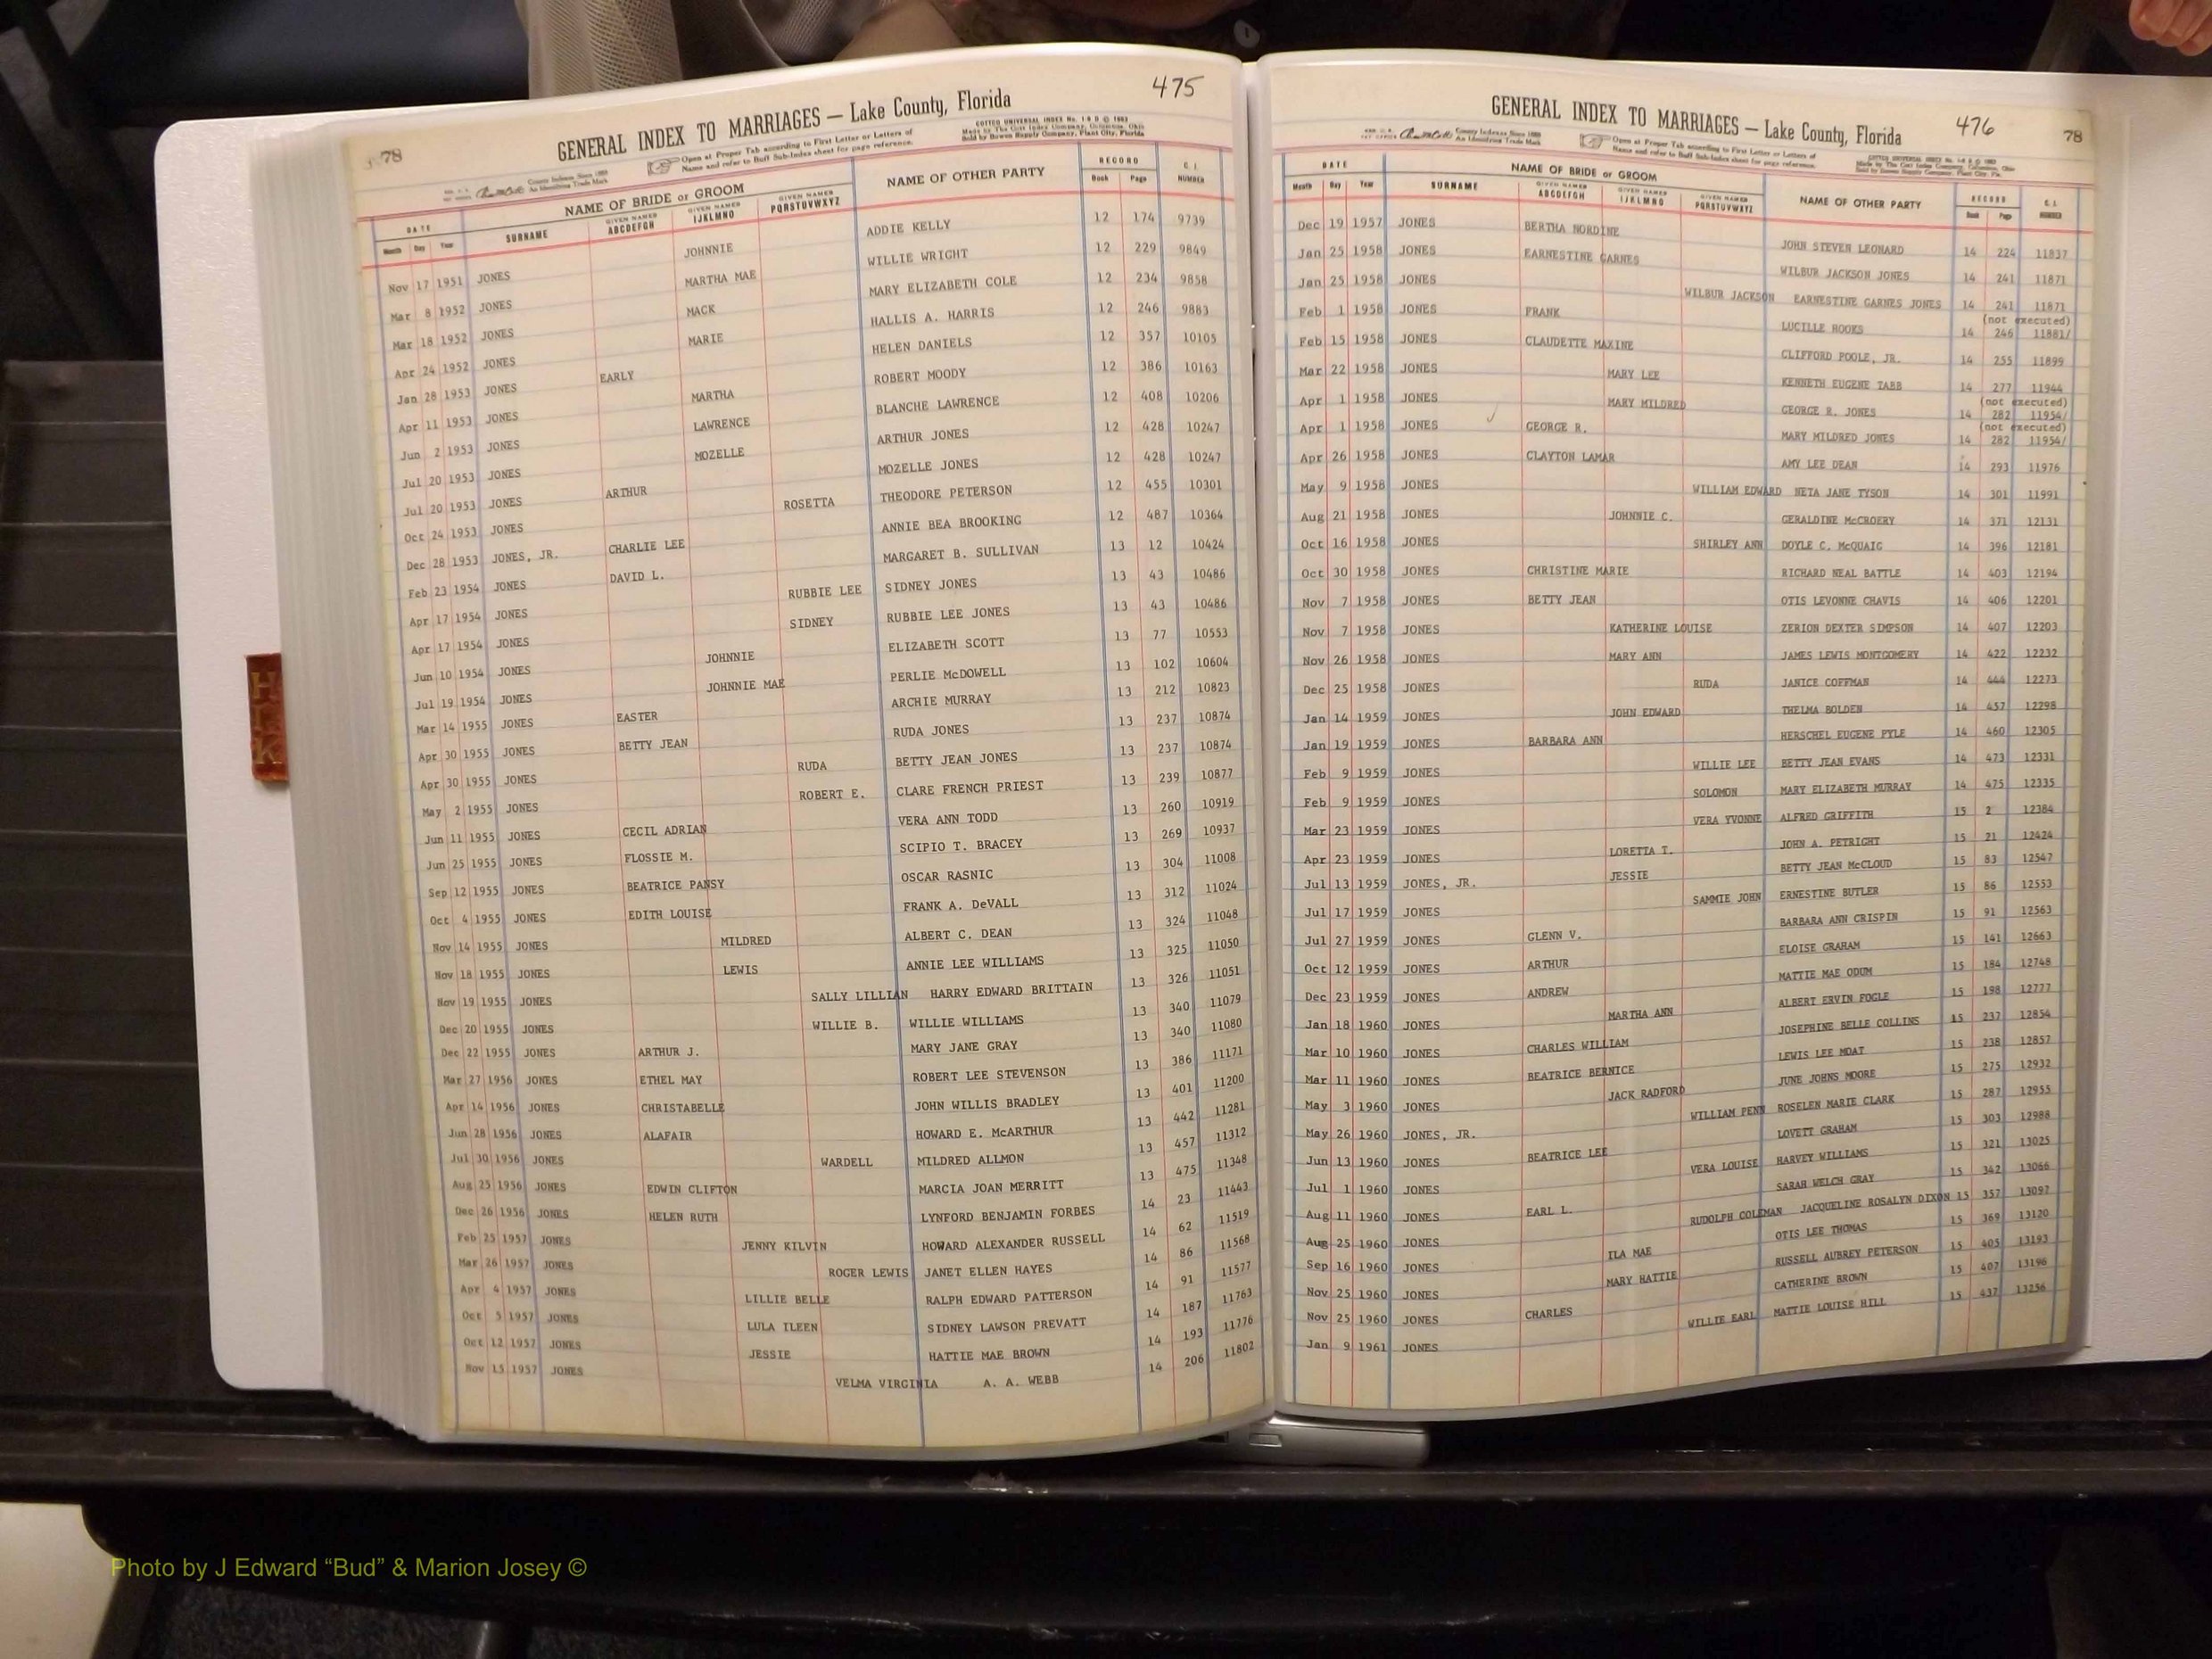 475
78
GENERAL INDEX TO MARRIAGES — Lake County, Florida
County Indexes Since 1888 An Identifying Trade Mark
Open at Proper Tab according to First Letter or Letters of
Name and refer to Buff Sub-Index sheet for page reference.
DATE NAME OF BRIDE or GROOM NAME OF OTHER PARTY RECORD C. I.
Month Day Year SURNAME GIVEN NAMES ABCDEFGH GIVEN NAMES IJKLMNO GIVEN NAMES PQRSTUVWXYZ Book Page NUMBER
Nov 17 1951 JONES JOHNNIE ADDIE KELLY 12 174 9739
Mar 8 1952 JONES MARTHA MAE WILLIE WRIGHT 12 229 9849
Mar 18 1952 JONES MACK MARY ELIZABETH COLE 12 234 9858
Apr 24 1952 JONES MARIE HALLIS A. HARRIS 12 246 9883
Jan 28 1953 JONES EARLY HELEN DANIELS 12 357 10105
Apr 11 1953 JONES MARTHA ROBERT MOODY 12 386 10163
Jun 2 1953 JONES LAWRENCE BLANCHE LAWRENCE 12 408 10206
Jul 20 1953 JONES MOZELLE ARTHUR JONES 12 428 10247
Jul 20 1953 JONES ARTHUR MOZELLE JONES 12 428 10247
Oct 24 1953 JONES ROSETTA THEODORE PETERSON 12 455 10301
Dec 28 1953 JONES, JR. CHARLIE LEE ANNIE BEA BROOKING 12 487 10364
Feb 23 1954 JONES DAVID L. MARGARET B. SULLIVAN 13 12 10424
Apr 17 1954 JONES RUBBIE LEE SIDNEY JONES 13 43 10486
Apr 17 1954 JONES SIDNEY RUBBIE LEE JONES 13 43 10486
Jun 10 1954 JONES JOHNNIE ELIZABETH SCOTT 13 77 10553
Jul 19 1954 JONES JOHNNIE MAE PERLIE McDOWELL 13 102 10604
Mar 14 1955 JONES EASTER ARCHIE MURRAY 13 212 10823
Apr 30 1955 JONES BETTY JEAN RUDA JONES 13 237 10874
Apr 30 1955 JONES RUDA BETTY JEAN JONES 13 237 10874
May 2 1955 JONES ROBERT E. CLARE FRENCH PRIEST 13 239 10877
Jun 11 1955 JONES CECIL ADRIAN VERA ANN TODD 13 260 10919
Jun 25 1955 JONES FLOSSIE M. SCIPIO T. BRACEY 13 269 10937
Sep 12 1955 JONES BEATRICE PANSY OSCAR RASNIC 13 304 11008
Oct 4 1955 JONES EDITH LOUISE FRANK A. DeVALL 13 312 11024
Nov 14 1955 JONES MILDRED ALBERT C. DEAN 13 324 11048
Nov 18 1955 JONES LEWIS ANNIE LEE WILLIAMS 13 325 11050
Nov 19 1955 JONES SALLY LILLIAN HARRY EDWARD BRITTAIN 13 326 11051
Dec 20 1955 JONES WILLIE B. WILLIE WILLIAMS 13 340 11079
Dec 22 1955 JONES ARTHUR J. MARY JANE GRAY 13 340 11080
Mar 27 1956 JONES ETHEL MAY ROBERT LEE STEVENSON 13 386 11171
Apr 14 1956 JONES CHRISTABELLE JOHN WILLIS BRADLEY 13 401 11200
Jun 28 1956 JONES ALAFAIR HOWARD E. McARTHUR 13 442 11281
Jul 30 1956 JONES WARDELL MILDRED ALLMON 13 457 11312
Aug 25 1956 JONES EDWIN CLIFTON MARCIA JOAN MERRITT 13 475 11348
Dec 26 1956 JONES HELEN RUTH LYNFORD BENJAMIN FORBES 14 23 11443
Feb 25 1957 JONES JENNY KILVIN HOWARD ALEXANDER RUSSELL 14 62 11519
Mar 26 1957 JONES ROGER LEWIS JANET ELLEN HAYES 14 86 11568
Apr 4 1957 JONES LILLIE BELLE RALPH EDWARD PATTERSON 14 91 11577
Oct 5 1957 JONES LULA ILEEN SIDNEY LAWSON PREVATT 14 187 11763
Oct 12 1957 JONES JESSIE HATTIE MAE BROWN 14 193 11776
Nov 15 1957 JONES VELMA VIRGINIA A. A. WEBB 14 206 11802
H I K
476
78
GENERAL INDEX TO MARRIAGES — Lake County, Florida
County Indexes Since 1888 An Identifying Trade Mark
Open at Proper Tab according to First Letter or Letters of
Name and refer to Buff Sub-Index sheet for page reference.
DATE NAME OF BRIDE or GROOM NAME OF OTHER PARTY RECORD C. I.
Month Day Year SURNAME GIVEN NAMES ABCDEFGH GIVEN NAMES IJKLMNO GIVEN NAMES PQRSTUVWXYZ Book Page NUMBER
Dec 19 1957 JONES BERTHA NORDINE JOHN STEVEN LEONARD 14 224 11837
Jan 25 1958 JONES EARNESTINE GARNES WILBUR JACKSON JONES 14 241 11871
Jan 25 1958 JONES WILBUR JACKSON EARNESTINE GARNES JONES 14 241 11871
(not executed)
Feb 1 1958 JONES FRANK LUCILLE HOOKS 14 246 11881/
Feb 15 1958 JONES CLAUDETTE MAXINE CLIFFORD POOLE, JR. 14 255 11899
Mar 22 1958 JONES MARY LEE KENNETH EUGENE TABB 14 277 11944
(not executed)
Apr 1 1958 JONES MARY MILDRED GEORGE R. JONES 14 282 11954/
(not executed)
Apr 1 1958 JONES GEORGE R. MARY MILDRED JONES 14 282 11954/
Apr 26 1958 JONES CLAYTON LAMAR AMY LEE DEAN 14 293 11976
May 9 1958 JONES WILLIAM EDWARD NETA JANE TYSON 14 301 11991
Aug 21 1958 JONES JOHNNIE C. GERALDINE McCROERY 14 371 12131
Oct 16 1958 JONES SHIRLEY ANN DOYLE C. McQUAIG 14 396 12181
Oct 30 1958 JONES CHRISTINE MARIE RICHARD NEAL BATTLE 14 403 12194
Nov 7 1958 JONES BETTY JEAN OTIS LEVONNE CHAVIS 14 406 12201
Nov 7 1958 JONES KATHERINE LOUISE ZERION DEXTER SIMPSON 14 407 12203
Nov 26 1958 JONES MARY ANN JAMES LEWIS MONTGOMERY 14 422 12232
Dec 25 1958 JONES RUDA JANICE COFFMAN 14 444 12273
Jan 14 1959 JONES JOHN EDWARD THELMA BOLDEN 14 457 12298
Jan 19 1959 JONES BARBARA ANN HERSCHEL EUGENE PYLE 14 460 12305
Feb 9 1959 JONES WILLIE LEE BETTY JEAN EVANS 14 473 12331
Feb 9 1959 JONES SOLOMON MARY ELIZABETH MURRAY 14 475 12335
Mar 23 1959 JONES VERA YVONNE ALFRED GRIFFITH 15 2 12384
Apr 23 1959 JONES LORETTA T. JOHN A. PETRIGHT 15 21 12424
Jul 13 1959 JONES, JR. JESSIE BETTY JEAN McCLOUD 15 83 12547
Jul 17 1959 JONES SAMMIE JOHN ERNESTINE BUTLER 15 86 12553
Jul 27 1959 JONES GLENN V. BARBARA ANN CRISPIN 15 91 12563
Oct 12 1959 JONES ARTHUR ELOISE GRAHAM 15 141 12663
Dec 23 1959 JONES ANDREW MATTIE MAE ODUM 15 184 12748
Jan 18 1960 JONES MARTHA ANN ALBERT ERVIN FOGLE 15 198 12777
Mar 10 1960 JONES CHARLES WILLIAM JOSEPHINE BELLE COLLINS 15 237 12854
Mar 11 1960 JONES BEATRICE BERNICE LEWIS LEE MOAT 15 238 12857
May 3 1960 JONES JACK RADFORD JUNE JOHNS MOORE 15 275 12932
May 26 1960 JONES, JR. WILLIAM PENN ROSELEN MARIE CLARK 15 287 12955
Jun 13 1960 JONES BEATRICE LEE LOVETT GRAHAM 15 303 12988
Jul 1 1960 JONES VERA LOUISE HARVEY WILLIAMS 15 321 13025
Aug 11 1960 JONES EARL L. SARAH WELCH GRAY 15 342 13066
Aug 25 1960 JONES RUDOLPH COLEMAN JACQUELINE ROSALYN DIXON 15 357 13097
Sep 16 1960 JONES ILA MAE OTIS LEE THOMAS 15 369 13120
Nov 25 1960 JONES MARY HATTIE RUSSELL AUBREY PETERSON 15 405 13193
Nov 25 1960 JONES CHARLES CATHERINE BROWN 15 407 13196
Jan 9 1961 JONES WILLIE EARL MATTIE LOUISE HILL 15 437 13256
Photo by J Edward “Bud” & Marion Josey ©